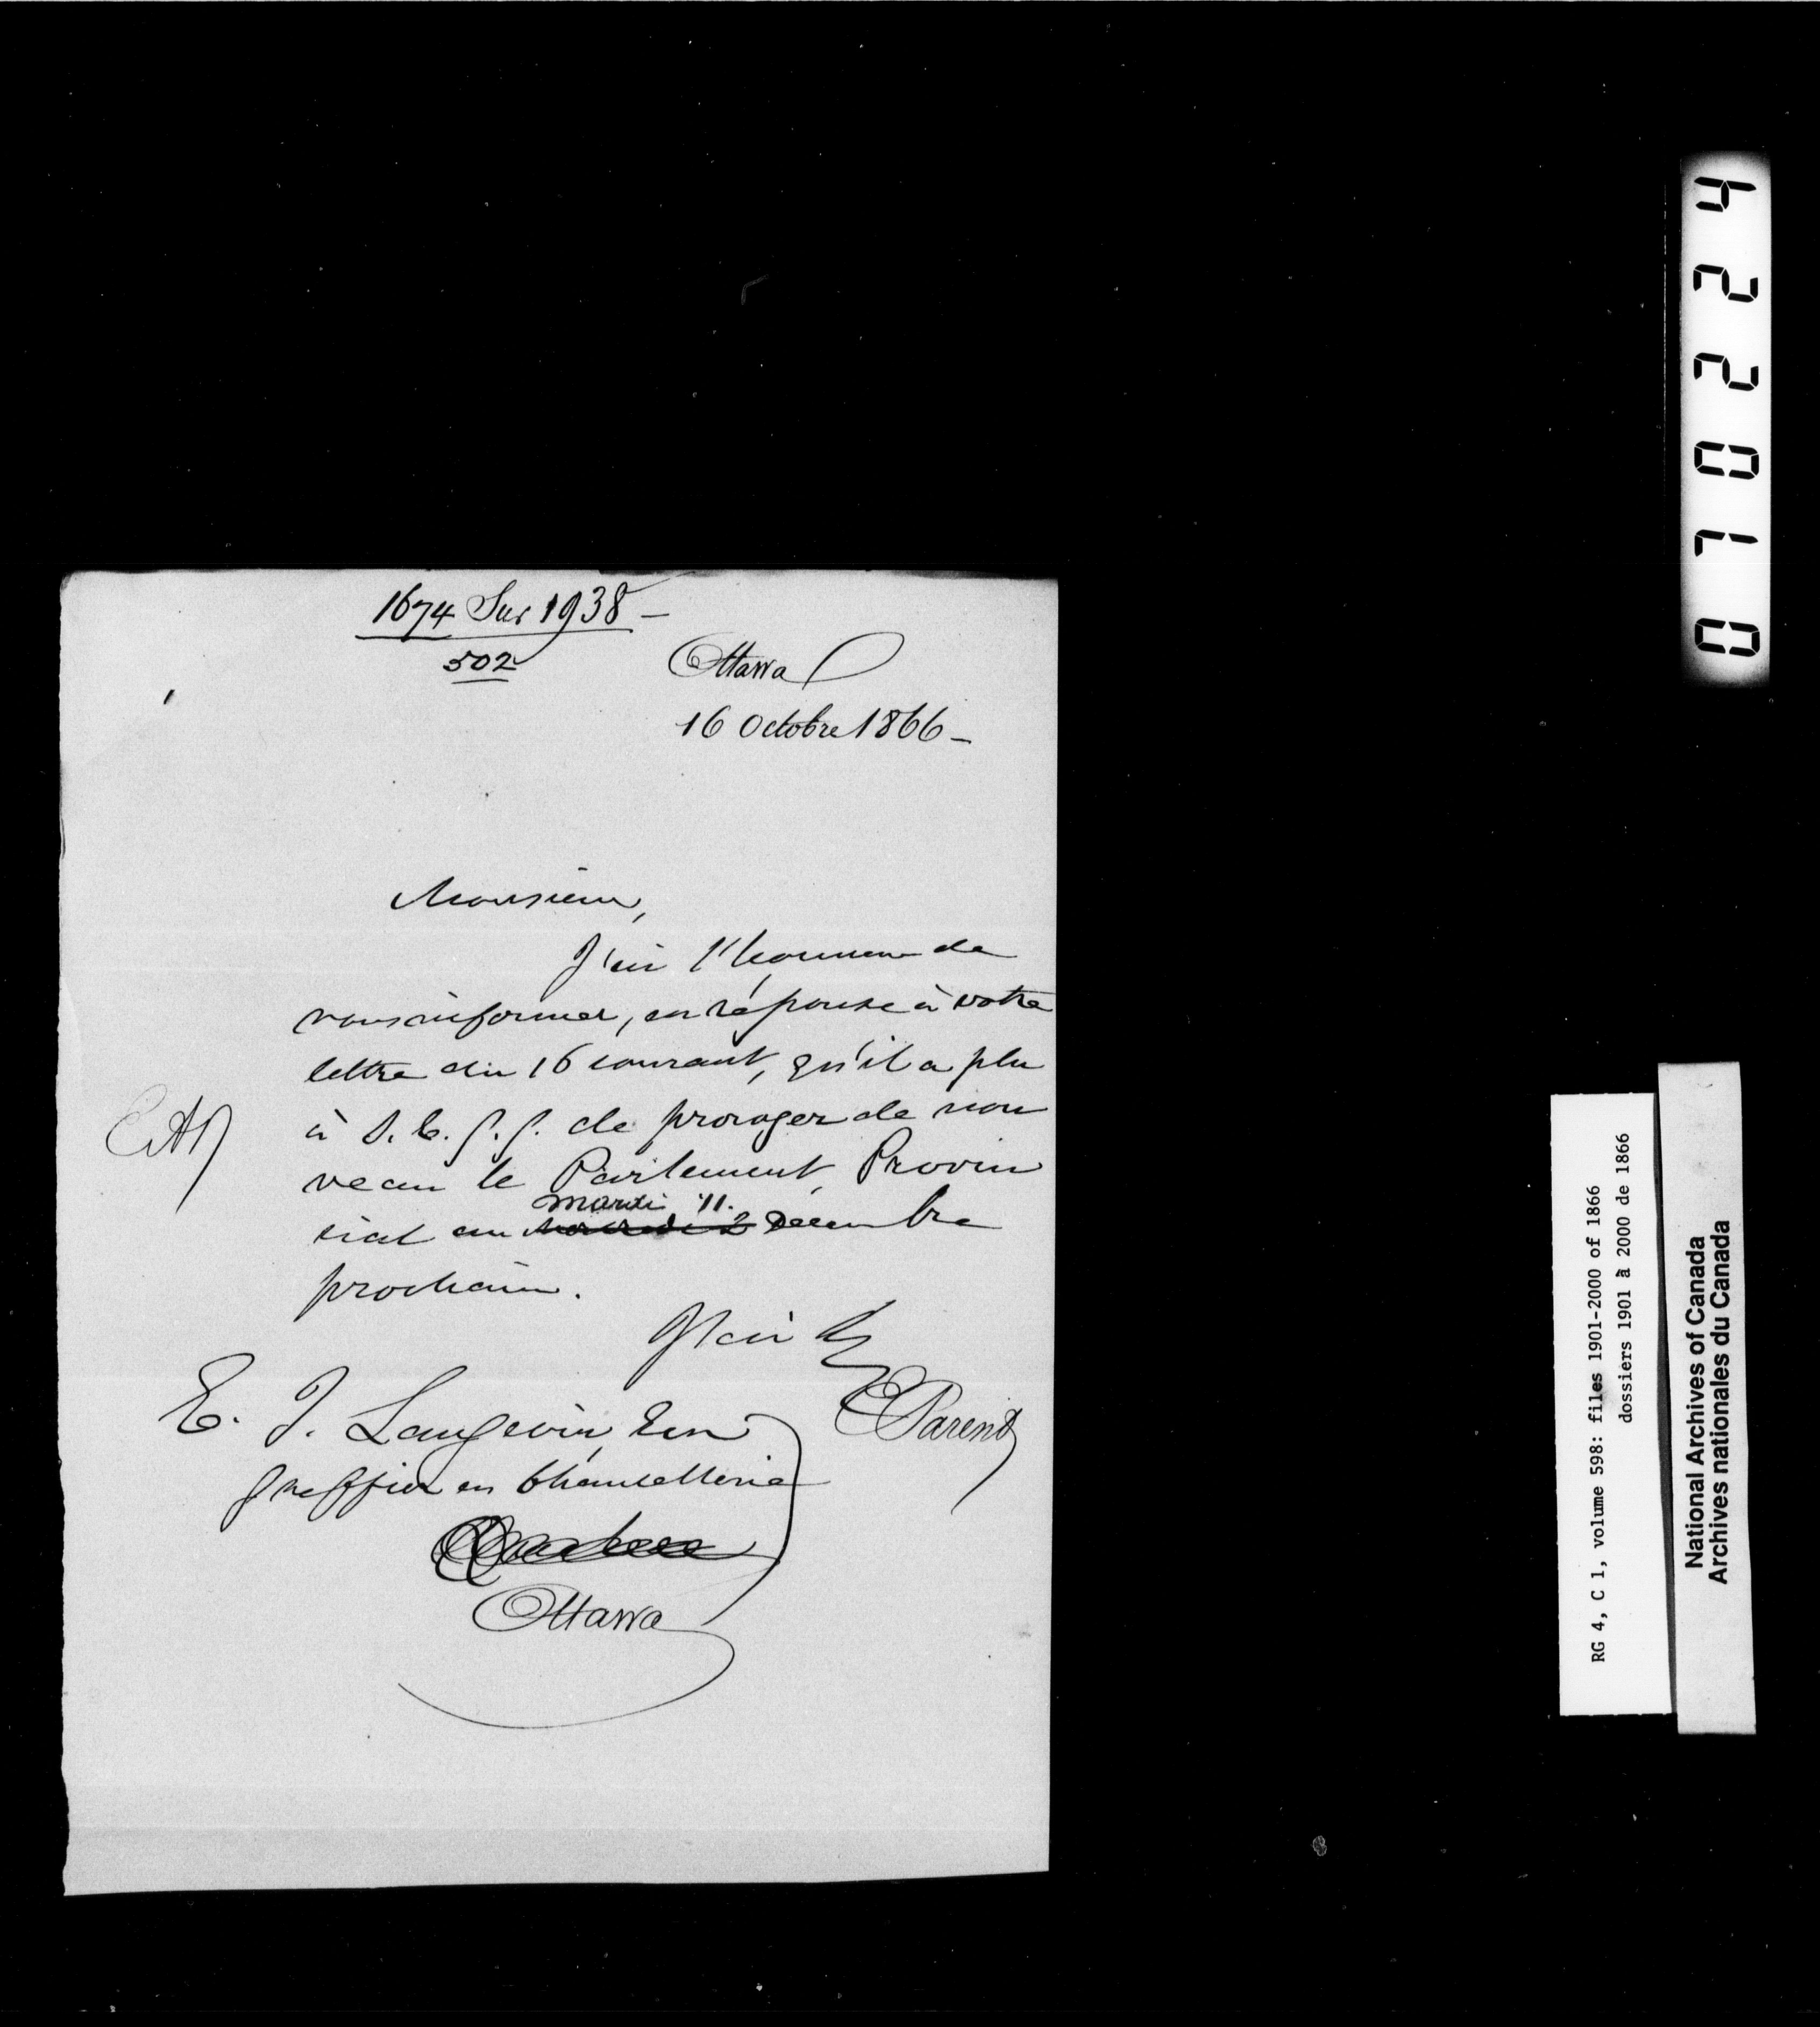 1674 Sur 1938 –
502
Ottawa
16 Octobre 1866 –
Monsieur,
J'ai l'honneur de
vous informer, en réponse à votre
lettre du 16 courant, qu'il a plu
à S. E. G. G. de proroger de nou
veau le Parlement Provin
cial au mardi 11. Décembre
prochain.
J'ai &c
EParent
E. J. Langevin Ecr
Greffier en Chancellerie
Ottawa
042201
RG 4, C 1, volume 598: files 1901-2000 of 1866
dossiers 1901 à 2000 de 1866
National Archives of Canada
Archives nationales du Canada